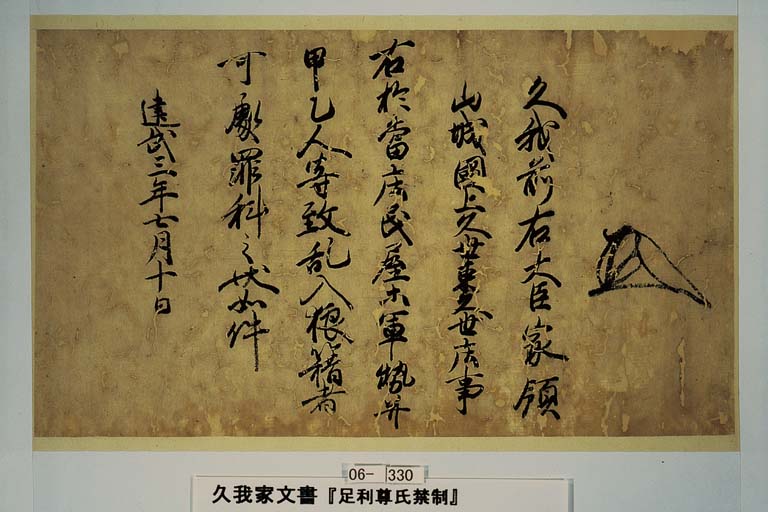 久我前右大臣家領
山城國上久世東久世庄事
右於當庄民屋等軍勢并
甲乙人等致乱入狼籍者
可處罪科之状如件
建武三年七月十日
06- 330
久我家文書『足利尊氏禁制』